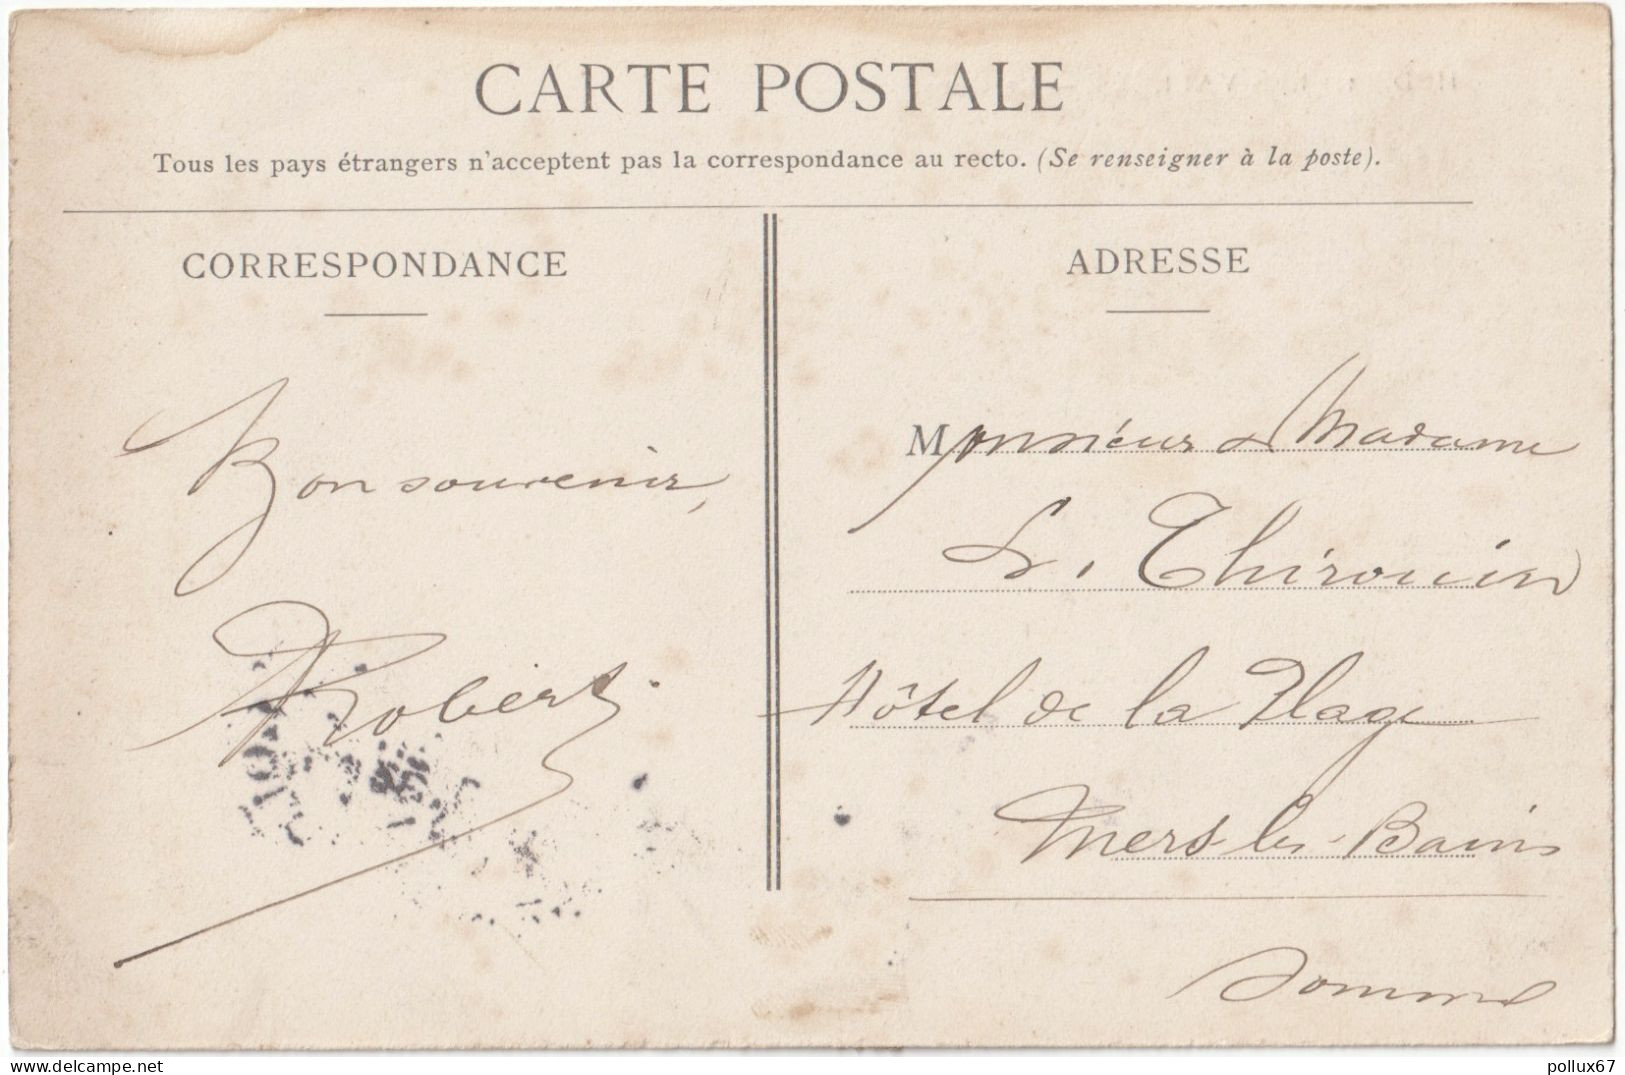 CARTE POSTALE
Tous les pays étrangers n'acceptent pas la correspondance au recto. (Se renseigner à la poste).
CORRESPONDANCE
Bon souvenir,
Robert.
ADRESSE
Monsieur & Madame
L. Thirouin
Hôtel de la Plage
Mers-les-Bains
Somme
www.delcampe.net
pollux67